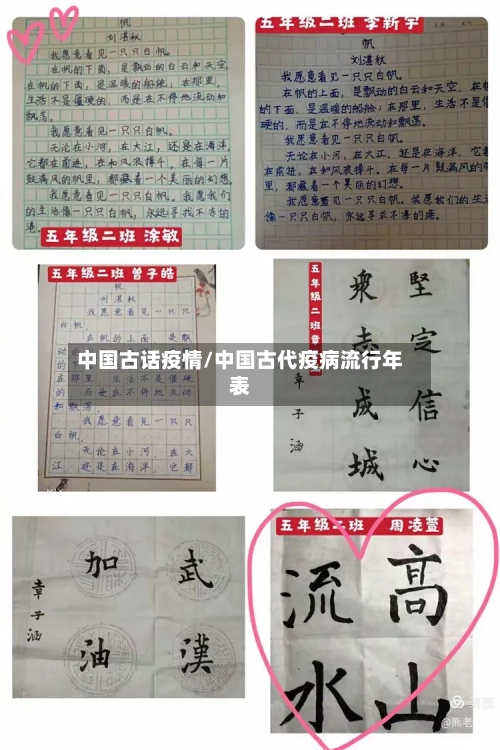 帆
刘湛秋
我愿意看见一只只白帆。
在帆的下面，是飘动的白云和天空，
在帆的下面，是温暖的船舱，在那里，
生活不是僵硬的，而是在不停地流动和
飘荡。
我愿意看见一只只白帆。
无论在小河，在大江，还是在海洋，
它都在前进，在和风浪搏斗。在每一片
鼓满风的帆里，都藏着一个美丽的幻想。
我愿意看见一只只白帆。我愿我们
的生活像一只只白帆，永远寻找不冻的
港。
五年级二班 涂敏
五年级二班 李新宇
帆
刘湛秋
我愿意看见一只只白帆。
在帆的上面，是飘动的白云和天空，在帆
的下面，是温暖的船舱，在那里，生活不是僵
硬的，而是在不停地流动和飘荡。
我愿意看见一只只白帆。
无论在小河，在大江，还是在海洋，它都
在前进，在和风浪搏斗。在每一片鼓满风的帆
里，都藏着一个美丽的幻想。
我愿意看见一只只白帆。我愿我们的生活
像一只只白帆，永远寻求不冻的港。
五年级二班 曾子皓
帆
刘湛秋
我愿意看见一只只
白帆。
在帆的上面，是飘
动的
的
在那里，生活不是僵硬
的，而是在不停地流动
和飘荡。
我愿意看见一只只
白帆。
无论在小河，在大
江，还是在海洋，它都
五年级二班章
坚定信心
众志成城
章子涵
中国古话疫情/中国古代疫病流行年
表
武汉
加油
章子涵
五年级二班 周凌萱
高山
流水
@熊老